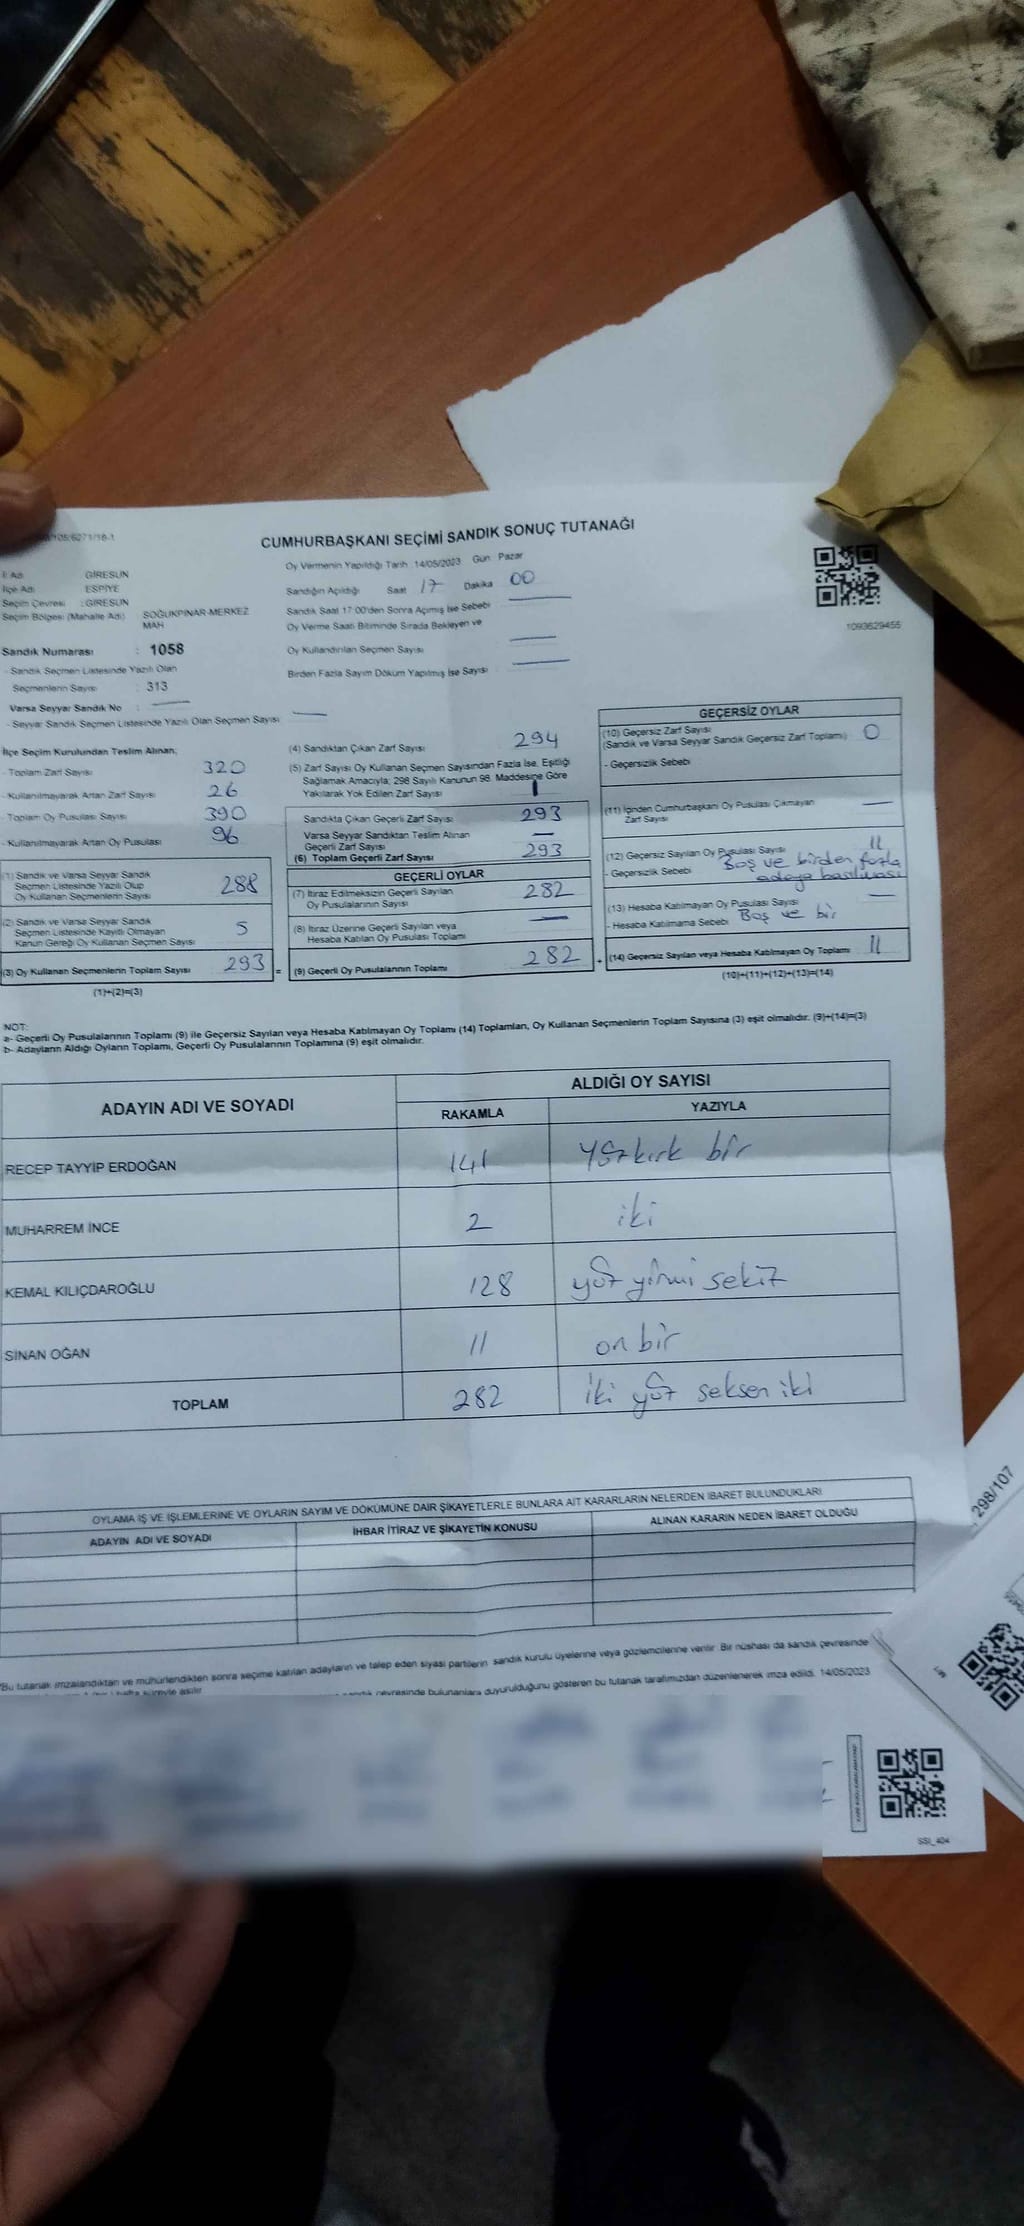 CUMHURBAŞKANI SEÇİMİ SANDIK SONUÇ TUTANAĞI
Oy Vermenin Yapıldığı Tarih 14/05/2023 Gün: Pazar
İl Adı GİRESUN
İlçe Adı ESPİYE
Seçim Çevresi : GİRESUN
Seçim Bölgesi (Mahalle Adı) SOĞUKPINAR-MERKEZ MAH
Sandık Numarası : 1058
- Sandık Seçmen Listesinde Yazılı Olan
Seçmenlerin Sayısı : 313
Varsa Seyyar Sandık No : —
- Seyyar Sandık Seçmen Listesinde Yazılı Olan Seçmen Sayısı —
Sandığın Açıldığı Saat 17 Dakika 00
Sandık Saat 17:00'den Sonra Açımış İse Sebebi —
Oy Verme Saati Bitiminde Sırada Bekleyen ve
Oy Kullandırılan Seçmen Sayısı —
Birden Fazla Sayım Döküm Yapılmış İse Sayısı —
1093629455
İlçe Seçim Kurulundan Teslim Alınan;
- Toplam Zarf Sayısı 320
- Kullanılmayarak Artan Zarf Sayısı 26
- Toplam Oy Pusulası Sayısı 390
- Kullanılmayarak Artan Oy Pusulası 96
(1) Sandık ve Varsa Seyyar Sandık
Seçmen Listesinde Yazılı Olup
Oy Kullanan Seçmenlerin Sayısı 288
(2) Sandık ve Varsa Seyyar Sandık
Seçmen Listesinde Kayıtlı Olmayan
Kanun Gereği Oy Kullanan Seçmen Sayısı 5
(3) Oy Kullanan Seçmenlerin Toplam Sayısı 293 =
(1)+(2)=(3)
(4) Sandıktan Çıkan Zarf Sayısı 294
(5) Zarf Sayısı Oy Kullanan Seçmen Sayısından Fazla İse, Eşitliği
Sağlamak Amacıyla; 298 Sayılı Kanunun 98. Maddesine Göre
Yakılarak Yok Edilen Zarf Sayısı 1
Sandıkta Çıkan Geçerli Zarf Sayısı 293
Varsa Seyyar Sandıktan Teslim Alınan
Geçerli Zarf Sayısı —
(6) Toplam Geçerli Zarf Sayısı 293
GEÇERLİ OYLAR
(7) İtiraz Edilmeksizin Geçerli Sayılan
Oy Pusulalarının Sayısı 282
(8) İtiraz Üzerine Geçerli Sayılan veya
Hesaba Katılan Oy Pusulası Toplamı —
(9) Geçerli Oy Pusulalarının Toplamı 282 +
GEÇERSİZ OYLAR
(10) Geçersiz Zarf Sayısı
(Sandık ve Varsa Seyyar Sandık Geçersiz Zarf Toplamı) 0
- Geçersizlik Sebebi
(11) İçinden Cumhurbaşkanı Oy Pusulası Çıkmayan
Zarf Sayısı —
(12) Geçersiz Sayılan Oy Pusulası Sayısı 11
- Geçersizlik Sebebi Boş ve birden fazla
adaya basılması
(13) Hesaba Katılmayan Oy Pusulası Sayısı —
- Hesaba Katılmama Sebebi Boş ve bir
(14) Geçersiz Sayılan veya Hesaba Katılmayan Oy Toplamı 11
(10)+(11)+(12)+(13)=(14)
NOT:
a- Geçerli Oy Pusulalarının Toplamı (9) ile Geçersiz Sayılan veya Hesaba Katılmayan Oy Toplamı (14) Toplamları, Oy Kullanan Seçmenlerin Toplam Sayısına (3) eşit olmalıdır. (9)+(14)=(3)
b- Adayların Aldığı Oyların Toplamı, Geçerli Oy Pusulalarının Toplamına (9) eşit olmalıdır.
ADAYIN ADI VE SOYADI ALDIĞI OY SAYISI
RAKAMLA YAZIYLA
RECEP TAYYİP ERDOĞAN 141 yüzkırk bir
MUHARREM İNCE 2 iki
KEMAL KILIÇDAROĞLU 128 yüz yirmi sekiz
SİNAN OĞAN 11 on bir
TOPLAM 282 iki yüz seksen iki
OYLAMA İŞ VE İŞLEMLERİNE VE OYLARIN SAYIM VE DÖKÜMÜNE DAİR ŞİKAYETLERLE BUNLARA AİT KARARLARIN NELERDEN İBARET BULUNDUKLARI
ADAYIN ADI VE SOYADI İHBAR İTİRAZ VE ŞİKAYETİN KONUSU ALINAN KARARIN NEDEN İBARET OLDUĞU
Bu tutanak imzalandıktan ve mühürlendikten sonra seçime katılan adayların ve talep eden siyasi partilerin sandık kurulu üyelerine veya gözlemcilerine verilir. Bir nüshası da sandık çevresinde
çevresinde bulunanlara duyurulduğunu gösteren bu tutanak tarafımızdan düzenlenerek imza edildi. 14/05/2023
298/107
SSI_404